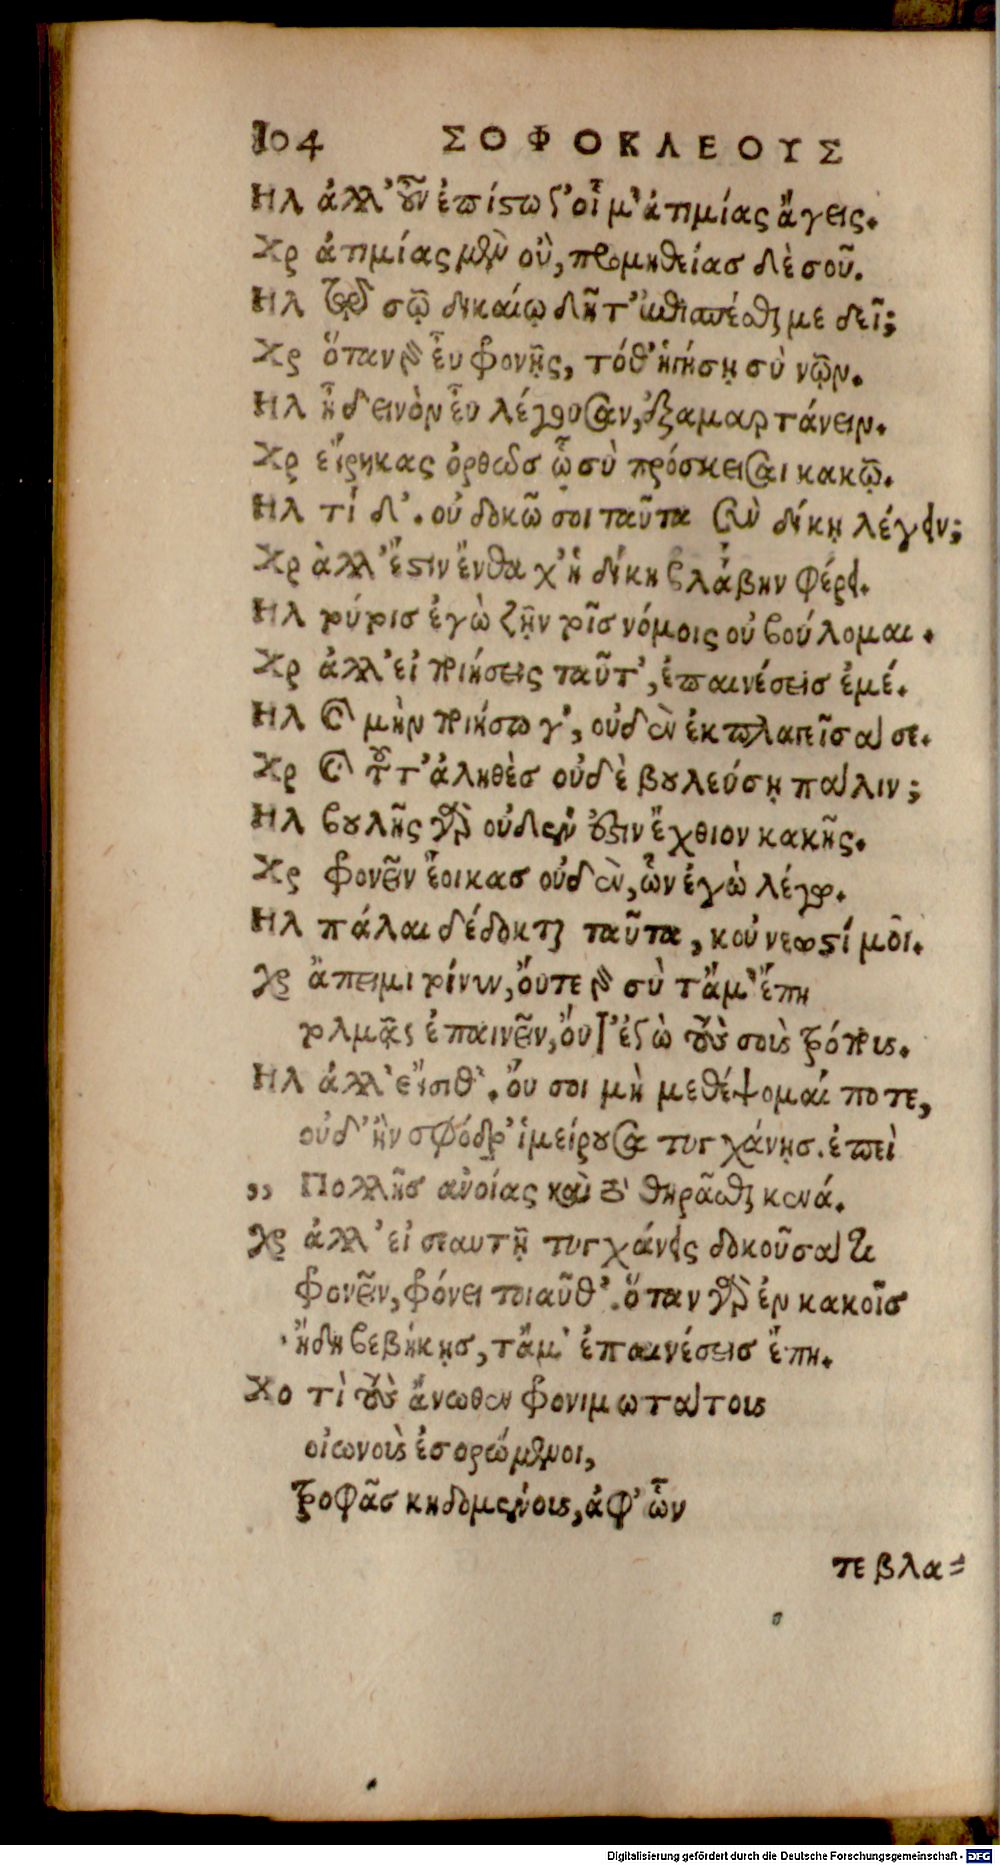 104 ΣΟΦΟΚΛΕΟΥΣ
Ηλ ἀλλ' οὖν ἐπίστω γ' οἷ μ' ἀτιμίας ἄγεις.
Χρ ἀτιμίας μὲν οὒ, προμηθείας δὲ σοῦ.
Ηλ τῷ σῷ δικαίῳ δῆτ' ἐπισπέσθαι με δεῖ;
Χρ ὅταν γὰρ εὖ φρονῇς, τόθ' ἡγήσῃ σὺ νῷν.
Ηλ ἦ δεινὸν εὖ λέγουσαν, ἐξαμαρτάνειν.
Χρ εἴρηκας ὀρθῶς ᾧ σὺ πρόσκεισαι κακῷ.
Ηλ τί δ'. οὐ δοκῶ σοι ταῦτα σὺν δίκῃ λέγειν;
Χρ ἀλλ' ἔστιν ἔνθα χ' ἡ δίκη βλάβην φέρει.
Ηλ τούτοις ἐγὼ ζῆν τοῖς νόμοις οὐ βούλομαι.
Χρ ἀλλ' εἰ ποιήσεις ταῦτ', ἐπαινέσεις ἐμέ.
Ηλ καὶ μὴν ποιήσω γ', οὐδὲν ἐκπλαγεῖσά σε.
Χρ καὶ τοῦτ' ἀληθὲς οὐδὲ βουλεύσῃ πάλιν;
Ηλ βουλῆς γὰρ οὐδέν ἐστιν ἔχθιον κακῆς.
Χρ φρονεῖν ἔοικας οὐδὲν, ὧν ἐγὼ λέγω.
Ηλ πάλαι δέδοκται ταῦτα, κοὐ νεωστί μοι.
Χρ ἄπειμι τοίνυν, ὄυτε γὰρ σὺ τἄμ' ἔπη
τολμᾷς ἐπαινεῖν, ὄυτ' ἐγὼ τοὺς σοὺς τρόπους.
Ηλ ἀλλ' εἴσιθ'. ὄυ σοι μὴ μεθέψομαί ποτε,
οὐδ' ἢν σφόδρ' ἱμείρουσα τυγχάνῃς. ἐπεὶ
,, Πολλῆς ἀνοίας καὶ τὸ θηρᾶσθαι κενά.
Χρ ἀλλ' εἰ σεαυτῇ τυγχάνεις δοκοῦσά τι
φρονεῖν, φρόνει τοιαῦθ'. ὅταν γὰρ ἐν κακοῖς
ἤδη βεβήκῃς, τἄμ' ἐπαινέσεις ἔπη.
Χο τὶ τοὺς ἄνωθεν φρονιμωτάτους
οἰωνοὺς ἐσορώμενοι,
τροφᾶς κηδομένους, ἀφ' ὧν
τε βλα=
Digitalisierung gefördert durch die Deutsche Forschungsgemeinschaft - DFG